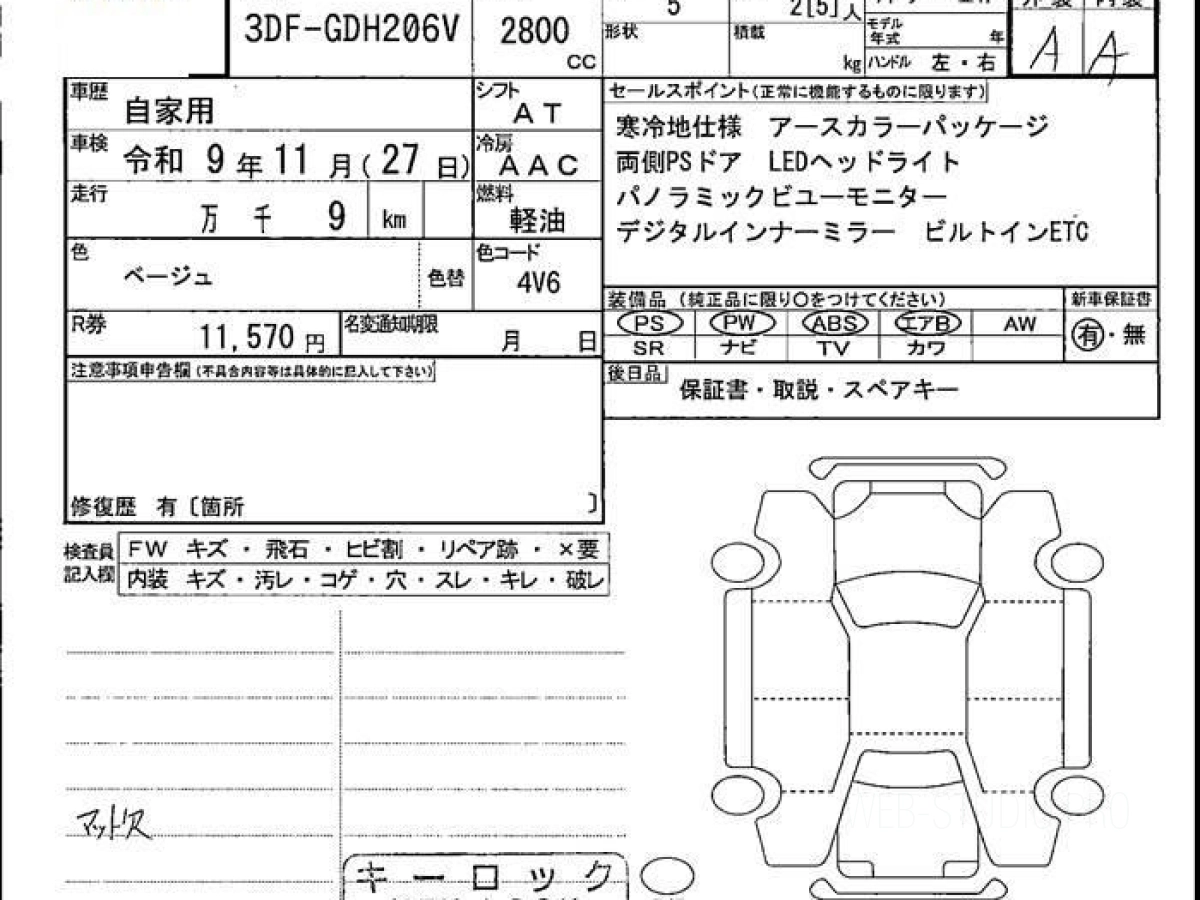 3DF-GDH206V 2800 CC
5 2[5]人
形状 積載 kg
モデル年式 年
ハンドル 左・右
外装 内装
A A
車歴 自家用
シフト AT
車検 令和 9 年 11 月(27 日)
冷房 AAC
走行 万 千 9 km
燃料 軽油
色 ベージュ 色替
色コード 4V6
R券 11,570 円
名変通知期限 月 日
セールスポイント(正常に機能するものに限ります)
寒冷地仕様 アースカラーパッケージ
両側PSドア LEDヘッドライト
パノラミックビューモニター
デジタルインナーミラー ビルトインETC
装備品 (純正品に限り○をつけてください)
PS PW ABS エアB AW
SR ナビ TV カワ
新車保証書
有・無
後日品 保証書・取説・スペアキー
注意事項申告欄(不具合内容等は具体的に記入して下さい)
修復歴 有〔箇所 〕
検査員記入欄
FW キズ・飛石・ヒビ割・リペア跡・×要
内装 キズ・汚レ・コゲ・穴・スレ・キレ・破レ
キーロック
WEB-STUDIO PRO